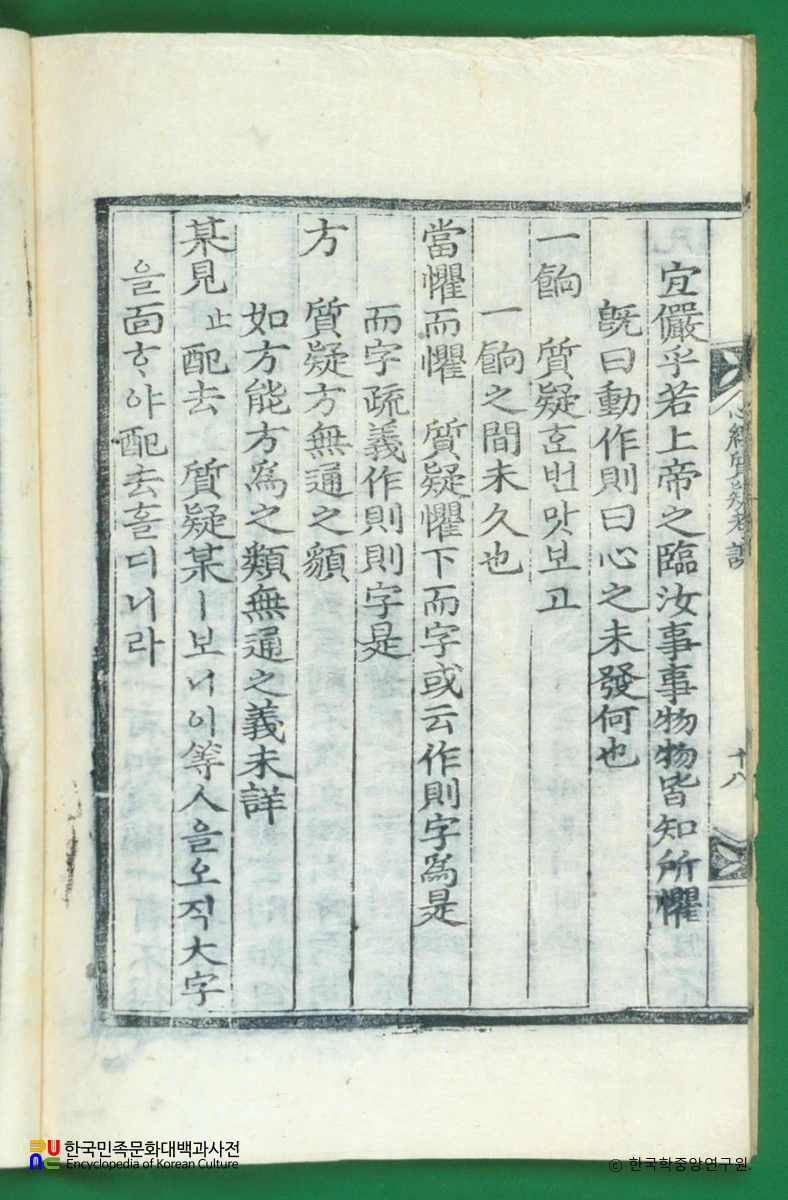 心經質疑考誤 十八
宜儼乎若上帝之臨汝事事物物皆知所懼
旣曰動作則曰心之未發何也
一餉 質疑호번맛보고
一餉之間未久也
當懼而懼 質疑懼下而字或云作則字爲是
而字疏義作則則字是
方 質疑方無通之䫉
如方能方爲之類無通之義未詳
某見 止 配去 質疑某ㅣ보니이等人을오직大字
을面ᄒᆞ야配去홀디니라
한국민족문화대백과사전
Encyclopedia of Korean Culture
© 한국학중앙연구원